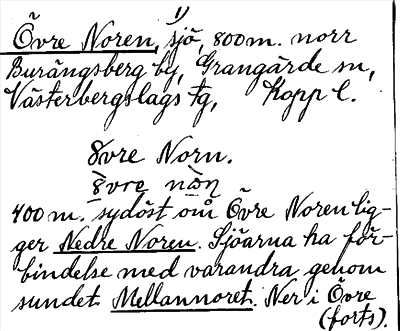 1)
Övre Noren, sjö, 800 m. norr
Burängsberg by, Grangärde sn,
Västerbergslags tg, Kopp l.
Övre Norn.
400 m. sydöst om Övre Noren lig-
ger Nedre Noren. Sjöarna ha för-
bindelse med varandra genom
sundet Mellannoret. Ner i Övre
(forts).